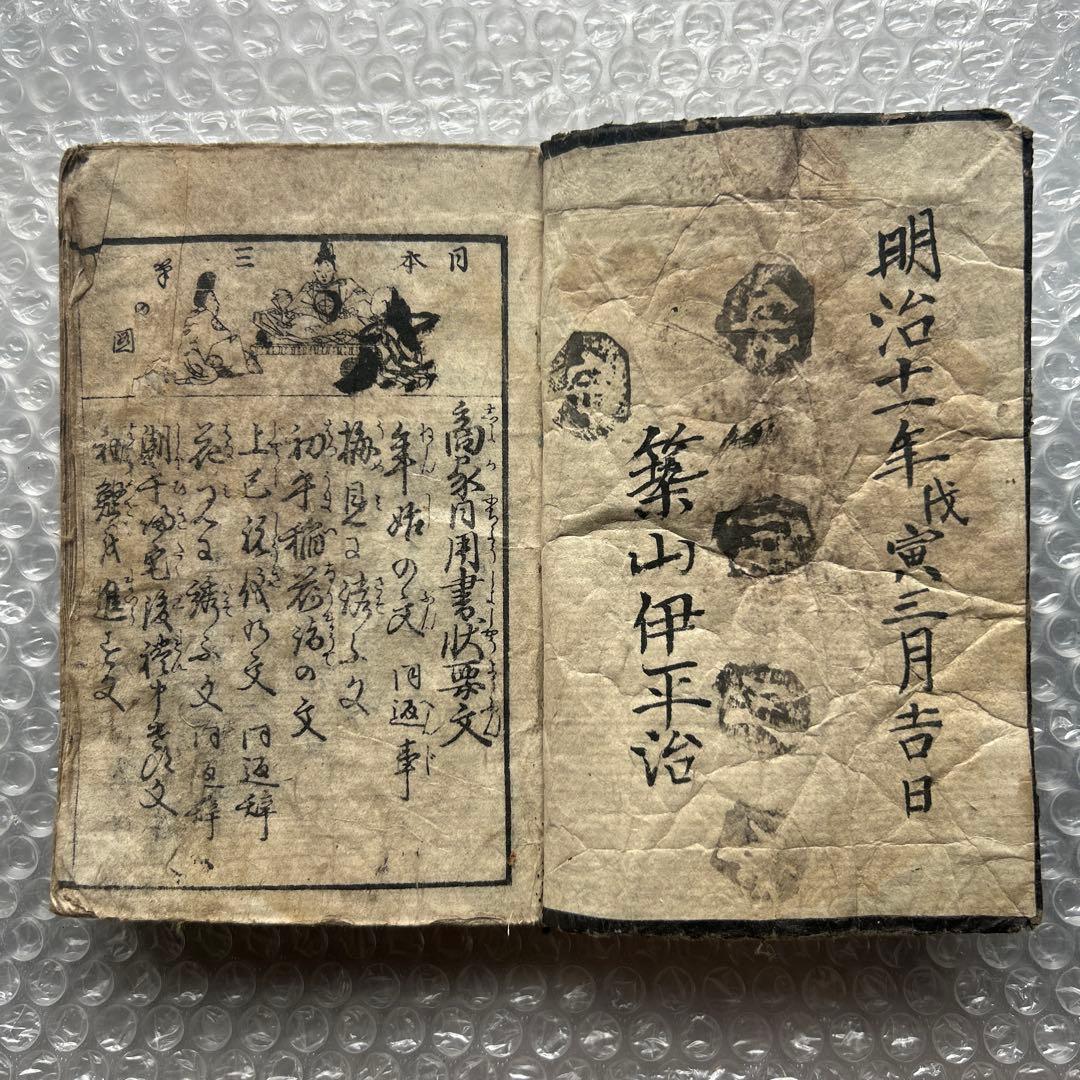 明治十一年戊寅三月吉日
築山伊平治
日本三筆の圖
商家日用書状要文
年始の文 同返事
梅見に誘ふ文
初午稲荷詣の文
上巳祝儀の文 同返辞
花見に誘ふ文 同返辞
潮干
進る文